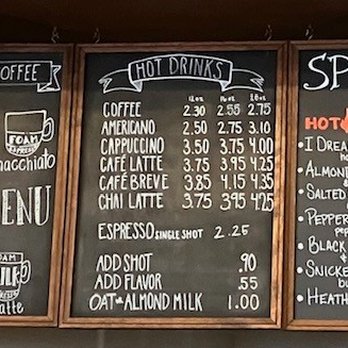 COFFEE
FOAM
ESPRESSO
macchiato
MENU
FOAM
MILK
ESPRESSO
Latte
HOT DRINKS
12oz 16oz 20oz
COFFEE 2.30 2.55 2.75
AMERICANO 2.50 2.75 3.10
CAPPUCCINO 3.50 3.75 4.00
CAFÉ LATTE 3.75 3.95 4.25
CAFÉ BREVE 3.85 4.15 4.35
CHAI LATTE 3.75 3.95 4.25
ESPRESSO SINGLE SHOT 2.25
ADD SHOT .90
ADD FLAVOR .55
OAT or ALMOND MILK 1.00
SP
HOT
• I DREA
• ALMOND
• SALTED
• PEPPER
• BLACK
&
• SNICKE
• HEATH